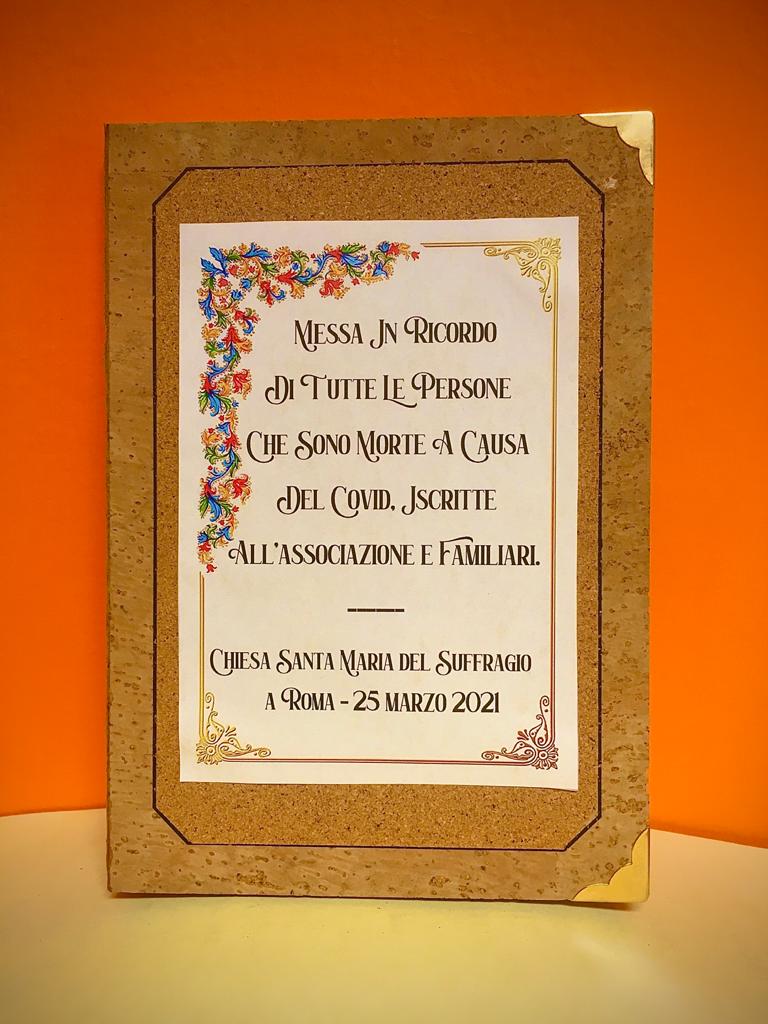 Messa In Ricordo
Di Tutte Le Persone
Che Sono Morte A Causa
Del Covid, Iscritte
All'associazione e Familiari.
Chiesa Santa Maria del Suffragio
a Roma - 25 marzo 2021